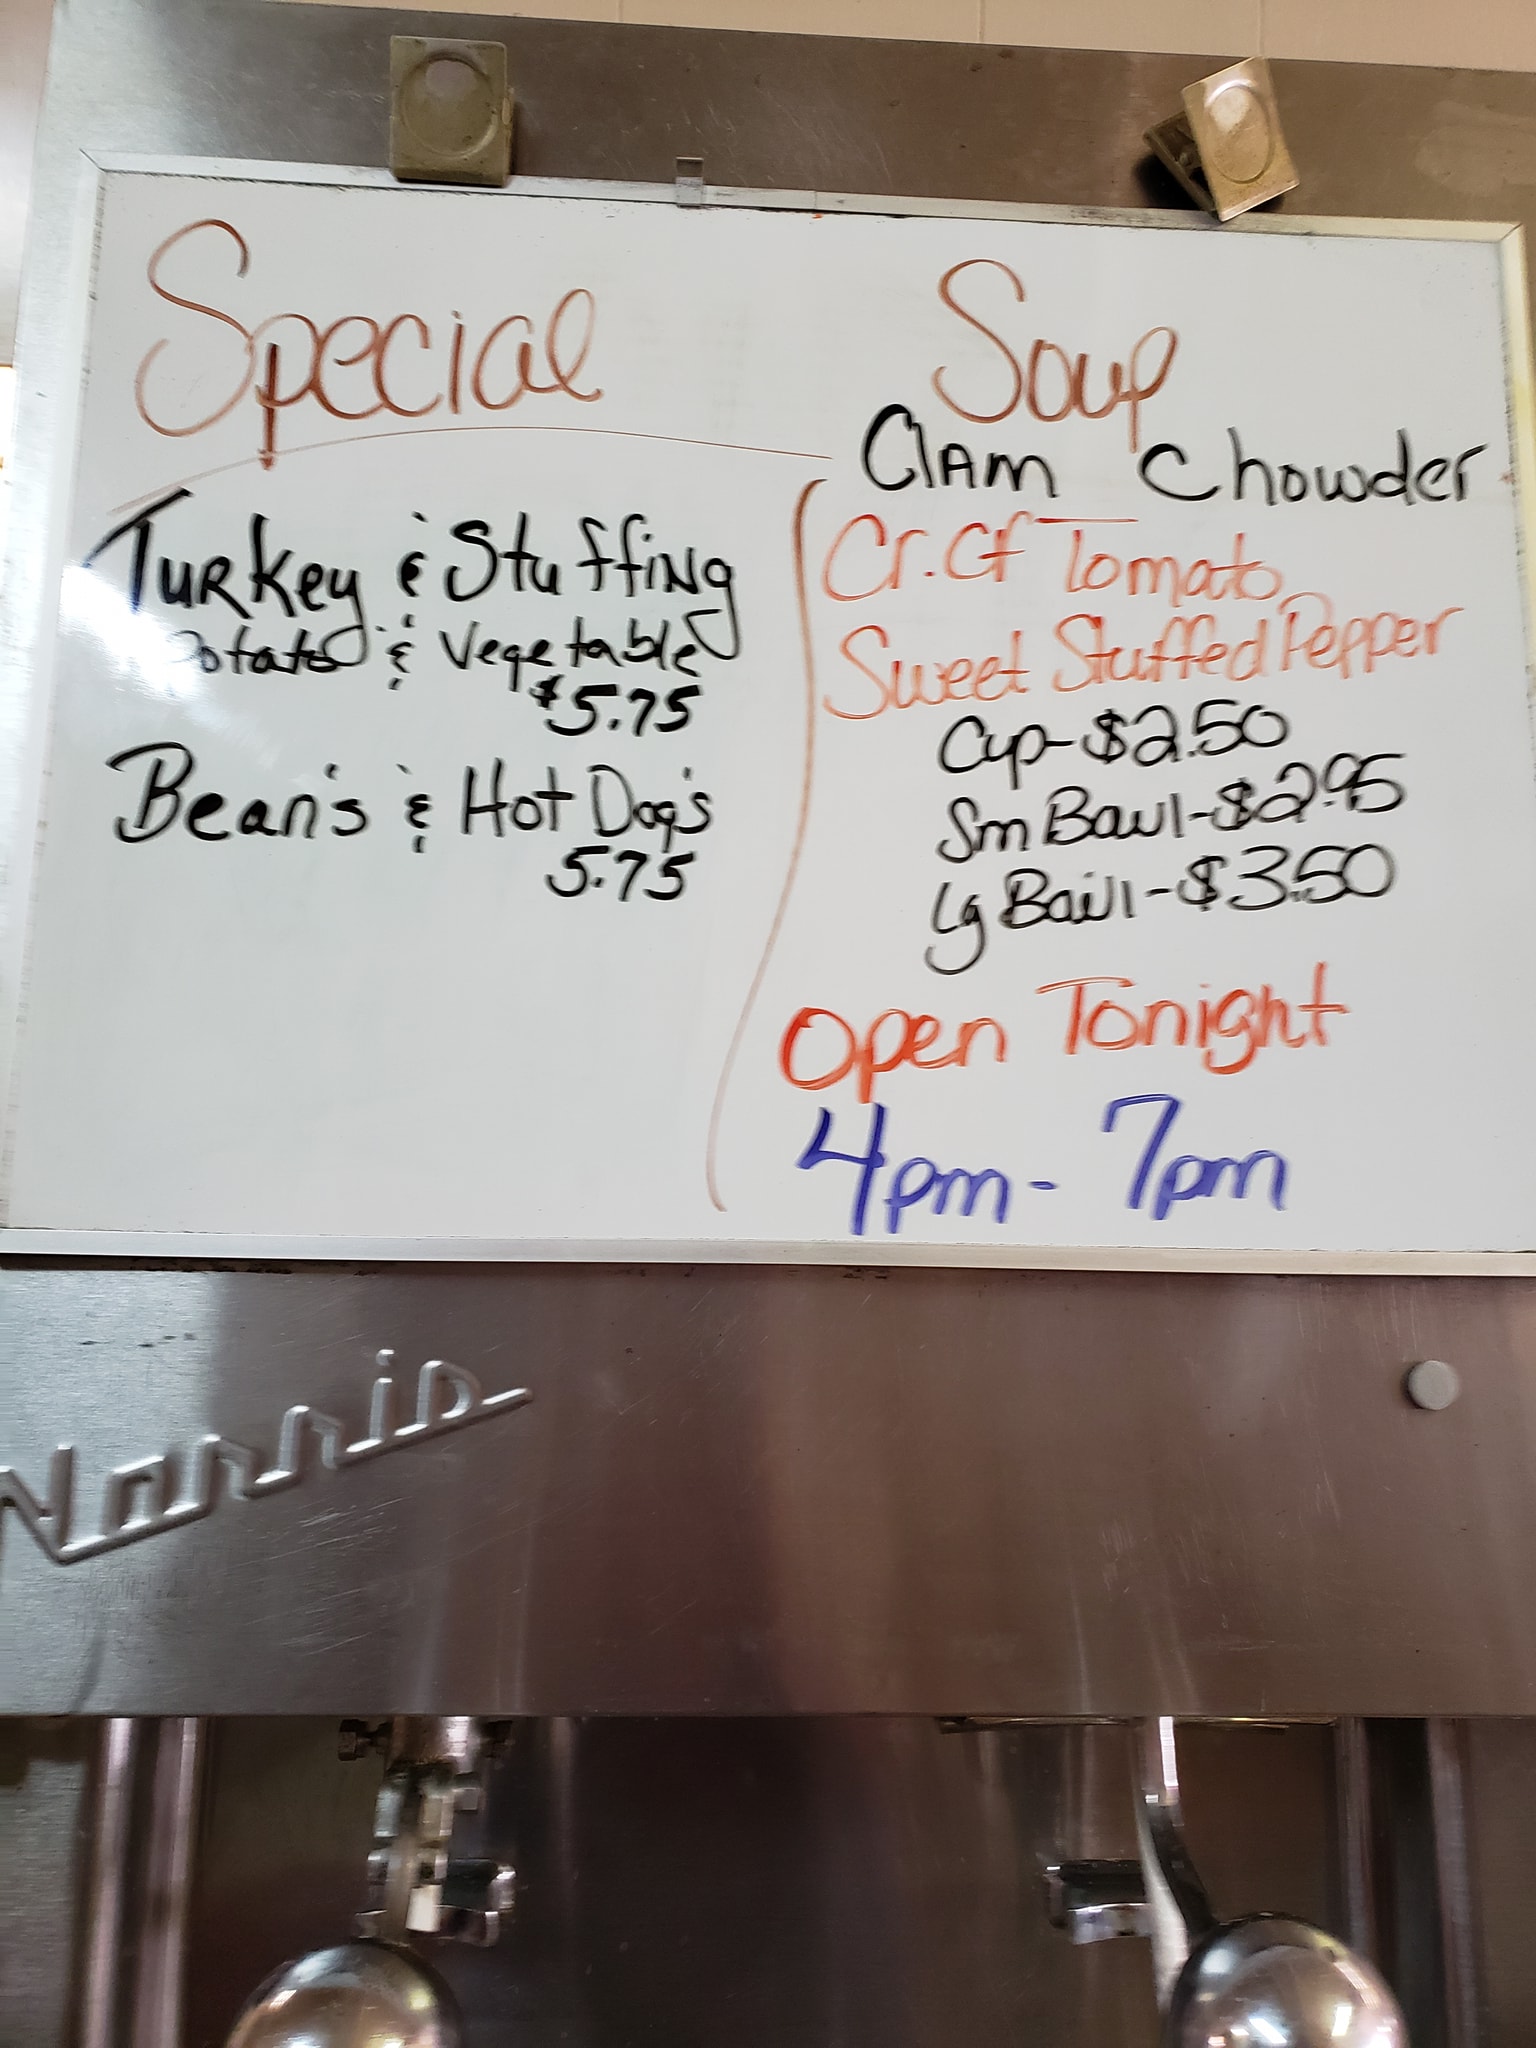 Special
Turkey & Stuffing
Potato & Vegetable
$5.75
Bean's & Hot Dog's
5.75
Soup
Clam Chowder
Cr. Of Tomato
Sweet Stuffed Pepper
Cup-$2.50
Sm Bowl-$2.95
Lg Bowl-$3.50
Open Tonight
4pm-7pm
Norris